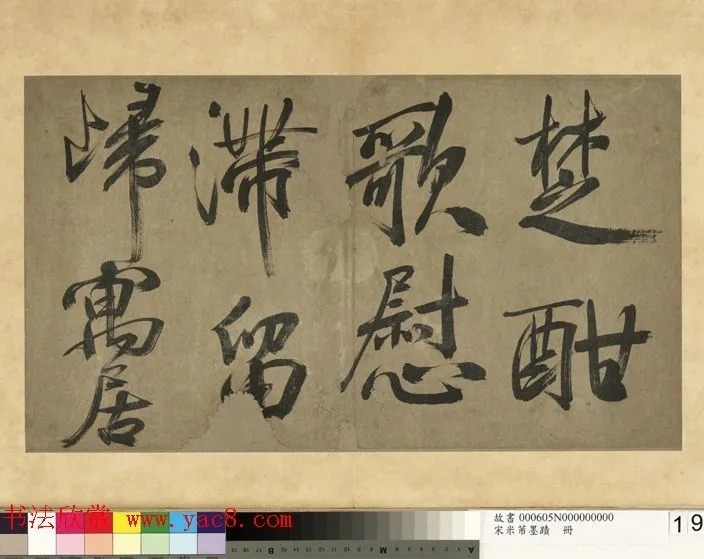 楚酣
歌慰
滞留
歸寓居
书法欣赏 www.yac8.com
故書 000605N000000000
宋米芾墨蹟 冊
19